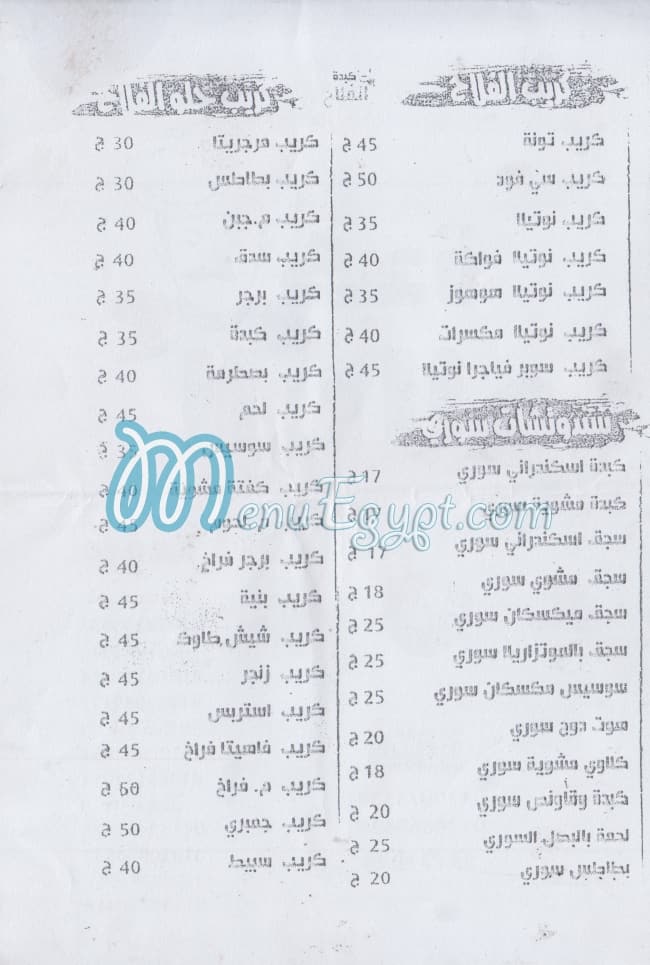 كريب الفلاح
كريب تونة 45 ج
كريب سي فود 50 ج
كريب نوتيلا 35 ج
كريب نوتيلا فواكة 40 ج
كريب نوتيلا هوهوز 35 ج
كريب نوتيلا مكسرات 40 ج
كريب سوبر فياجرا نوتيلا 45 ج
سندوتشات سوري
كبدة اسكندراني سوري 17 ج
كبدة مشوية سوري 17 ج
سجق اسكندراني سوري 17 ج
سجق مشوي سوري 18 ج
سجق ميكسكان سوري 25 ج
سجق بالموتزاريلا سوري 25 ج
سوسيس مكسكان سوري 25 ج
هوت دوج سوري 20 ج
كلاوي مشوية سوري 18 ج
كبدة وقاونص سوري 20 ج
لحمة بالبصل السوري 25 ج
بطاطس سوري 20 ج
كبدة
الفلاح
كريب حلة الفلاح
كريب مرجريتا 30 ج
كريب بطاطس 30 ج
كريب م.جبن 40 ج
كريب سدق 40 ج
كريب برجر 35 ج
كريب كبدة 35 ج
كريب بصطرمة 40 ج
كريب لحم 45 ج
كريب سوسيس 35 ج
كريب كفتة مشوية 40 ج
كريب م.لحوم 45 ج
كريب برجر فراخ 40 ج
كريب بنية 45 ج
كريب شيش طاوك 45 ج
كريب زنجر 45 ج
كريب استربس 45 ج
كريب فاهيتا فراخ 45 ج
كريب م.فراخ 60 ج
كريب جمبري 50 ج
كريب سبيط 40 ج
MenuEgypt.com